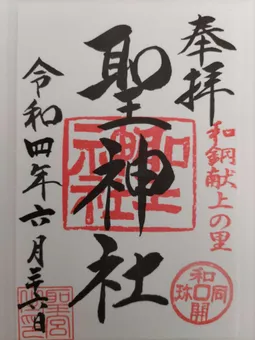 奉拝
和銅献上の里
聖神社
令和四年六月二六日
聖神社
和同開珎